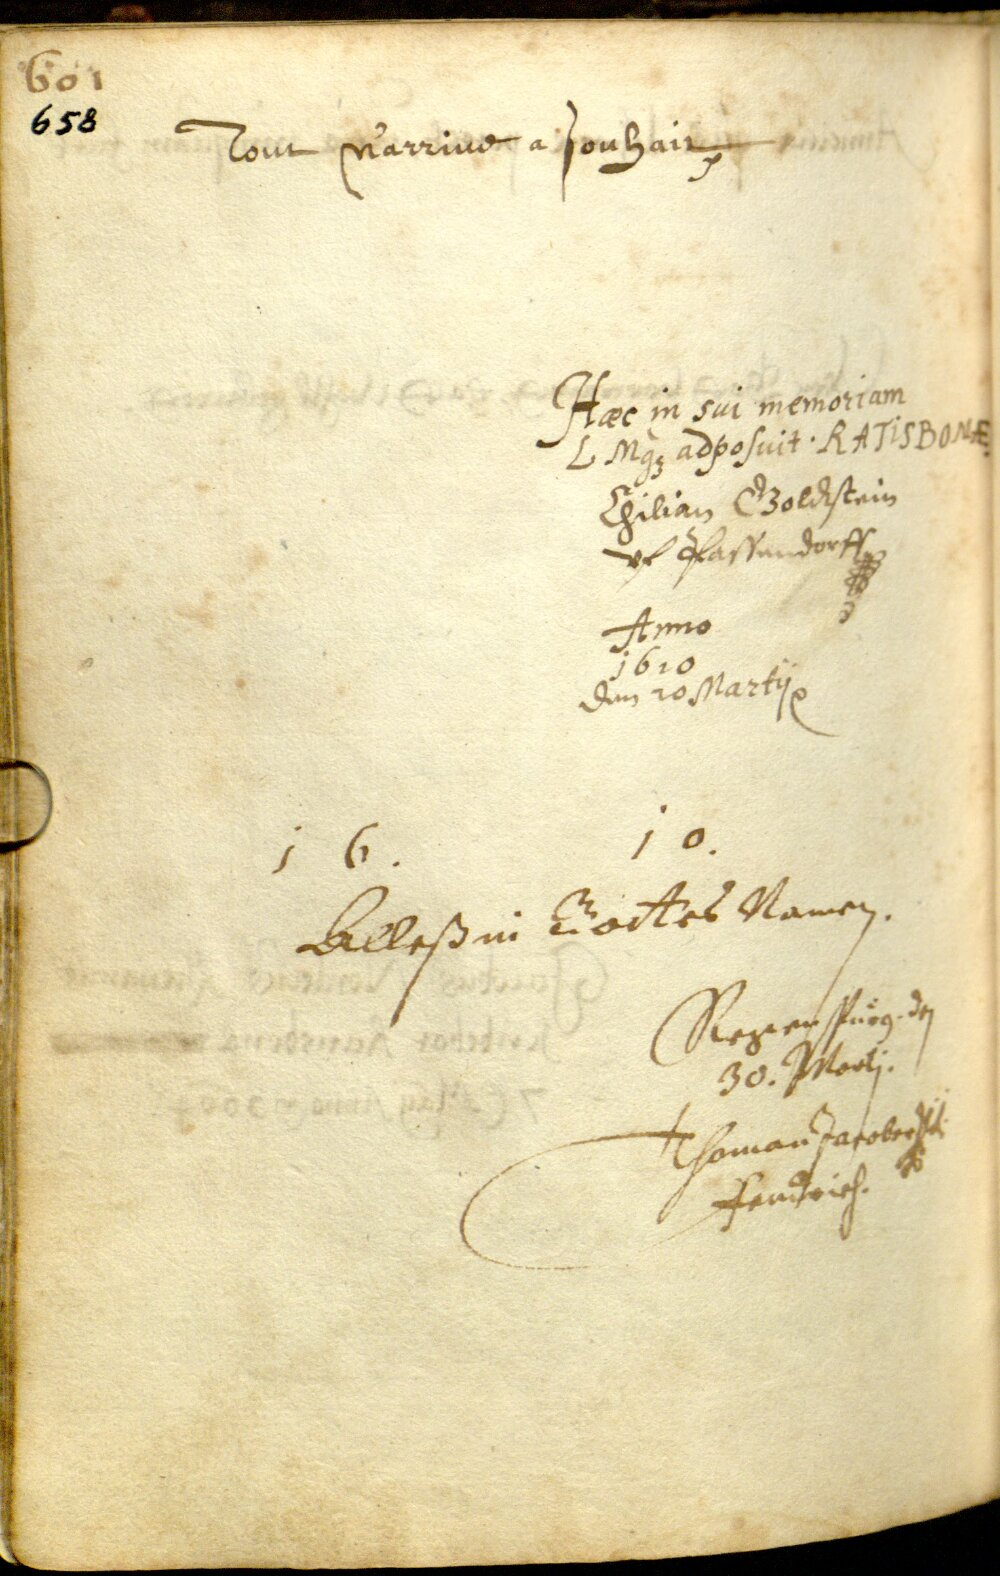 601
658
Tout n'arrive a souhait
Hæc in sui memoriam
L Mq3 adposuit. RATISBONÆ
Chilian Goldstein
vf Passendorff
Anno
1610
den 20 Martij
16. 10.
Alleß in Gottes Namen.
Regenspurg. den
30. Martj.
Thoman
Fendrich.